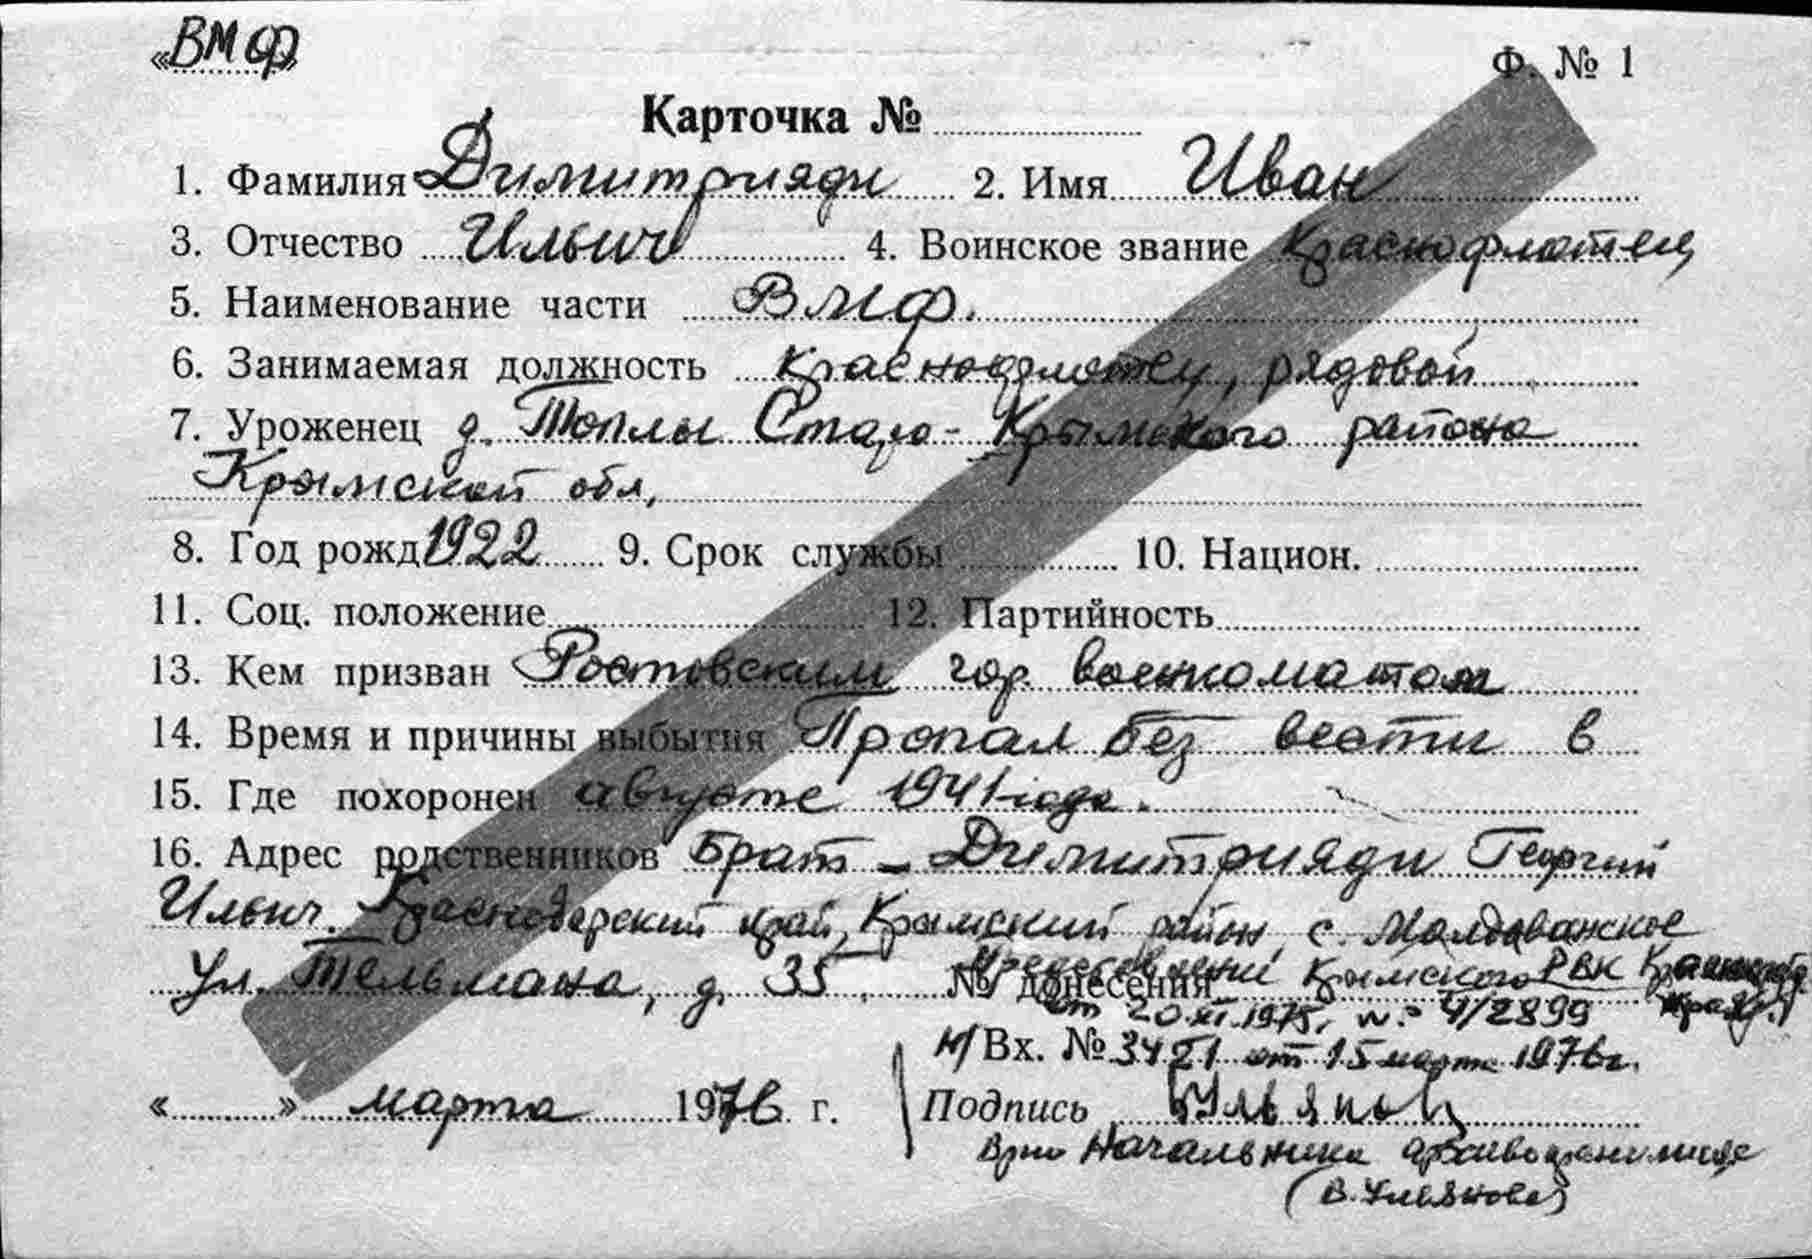 «ВМФ»
Ф. № 1
Карточка №
1. Фамилия Димитрияди 2. Имя Иван
3. Отчество Ильич 4. Воинское звание Краснофлотец
5. Наименование части ВМФ.
6. Занимаемая должность краснофлотец, рядовой
7. Уроженец д. Топлы Старо-Крымского района
Крымской обл,
8. Год рожд 1922 9. Срок службы 10. Национ.
11. Соц. положение 12. Партийность
13. Кем призван Ростовским гор. военкоматом
14. Время и причины выбытия Пропал без вести в
15. Где похоронен августе 1941 года.
16. Адрес родственников Брат - Димитрияди Георгий
Ильич. Краснодарский край, Крымский район, с. Молдаванское
ул. Тельмана, д. 35, № донесения Крымского РВК
от 20.XI.1975г. №: 4/2899 края.
Вх. № 3421 от 15 марта 1976г.
« » марта 1976 г. Подпись Ульянов
Врио Начальника архивохранилища
(В.Ульянова)